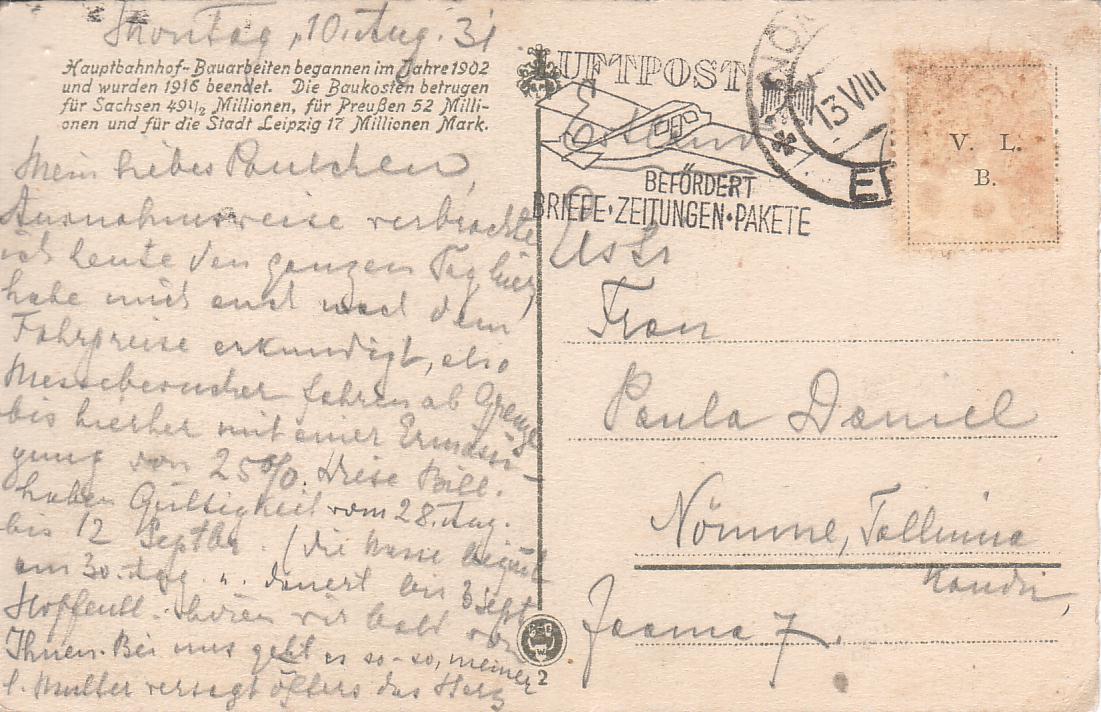 Montag, 10. Aug. 31
Hauptbahnhof-Bauarbeiten begannen im Jahre 1902
und wurden 1916 beendet. Die Baukosten betrugen
für Sachsen 49½ Millionen, für Preußen 52 Milli-
onen und für die Stadt Leipzig 17 Millionen Mark.
Mein liebes Paulchen,
Ausnahmsweise verbrachte
ich heute den ganzen Tag hier,
habe mich auch nach dem
Fahrpreise erkundigt, also
Messebesucher fahren ab Grenze
bis hierher mit einer Ermässi-
gung von 25%. Diese Bill.
haben Gültigkeit vom 28. Aug.
bis 12 Septbr. (die Messe beginnt
am 30. Aug. u. dauert bis 3 Sept
Hoffentl. hören wir bald von
Ihnen. Bei uns geht es so-so, meiner
l. Mutter versagt öfters das Herz
LUFTPOST
BEFÖRDERT
BRIEFE·ZEITUNGEN·PAKETE
13 VIII
V. L.
B.
Estland
Frau
Paula Daniel
Nömme, Tallinna
Jaama 7.
2